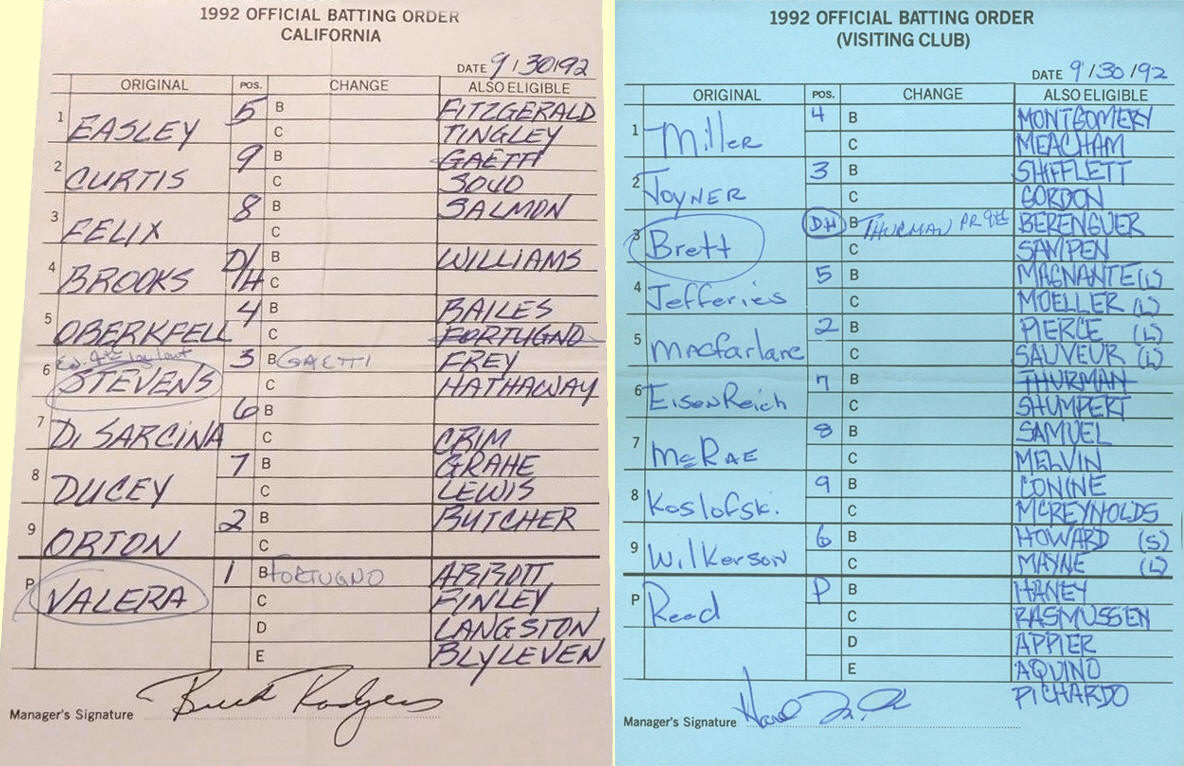 1992 OFFICIAL BATTING ORDER
CALIFORNIA
DATE 9/30/92
ORIGINAL POS. CHANGE ALSO ELIGIBLE
1 EASLEY 5 B FITZGERALD
C TINGLEY
2 CURTIS 9 B GAETTI
C SOJO
3 FELIX 8 B SALMON
C
4 BROOKS D/H B WILLIAMS
C
5 OBERKFELL 4 B BAILES
C FORTUGNO
6 STEVENS 3 B GAETTI FREY
C HATHAWAY
7 DISARCINA 6 B
C CRIM
8 DUCEY 7 B GRAHE
C LEWIS
9 ORTON 2 B BUTCHER
C
P VALERA 1 B FORTUGNO ABBOTT
C FINLEY
D LANGSTON
E BLYLEVEN
Manager's Signature Buck Rodgers
1992 OFFICIAL BATTING ORDER
(VISITING CLUB)
DATE 9/30/92
ORIGINAL POS. CHANGE ALSO ELIGIBLE
1 Miller 4 B MONTGOMERY
C MEACHAM
2 JOYNER 3 B SHIFFLETT
C GORDON
3 Brett DH B THURMAN PR BERENGUER
C SAMPEN
4 Jefferies 5 B MAGNANTE (L)
C MOELLER (L)
5 Macfarlane 2 B PIERCE (L)
C SAUVEUR (L)
6 EisenReich 7 B THURMAN
C SHUMPERT
7 McRAE 8 B SAMUEL
C MELVIN
8 Koslofski 9 B CONINE
C MCREYNOLDS
9 Wilkerson 6 B HOWARD (S)
C MAYNE (L)
P Reed P B HANEY
C RASMUSSEN
D APPIER
E AQUINO
PICHARDO
Manager's Signature